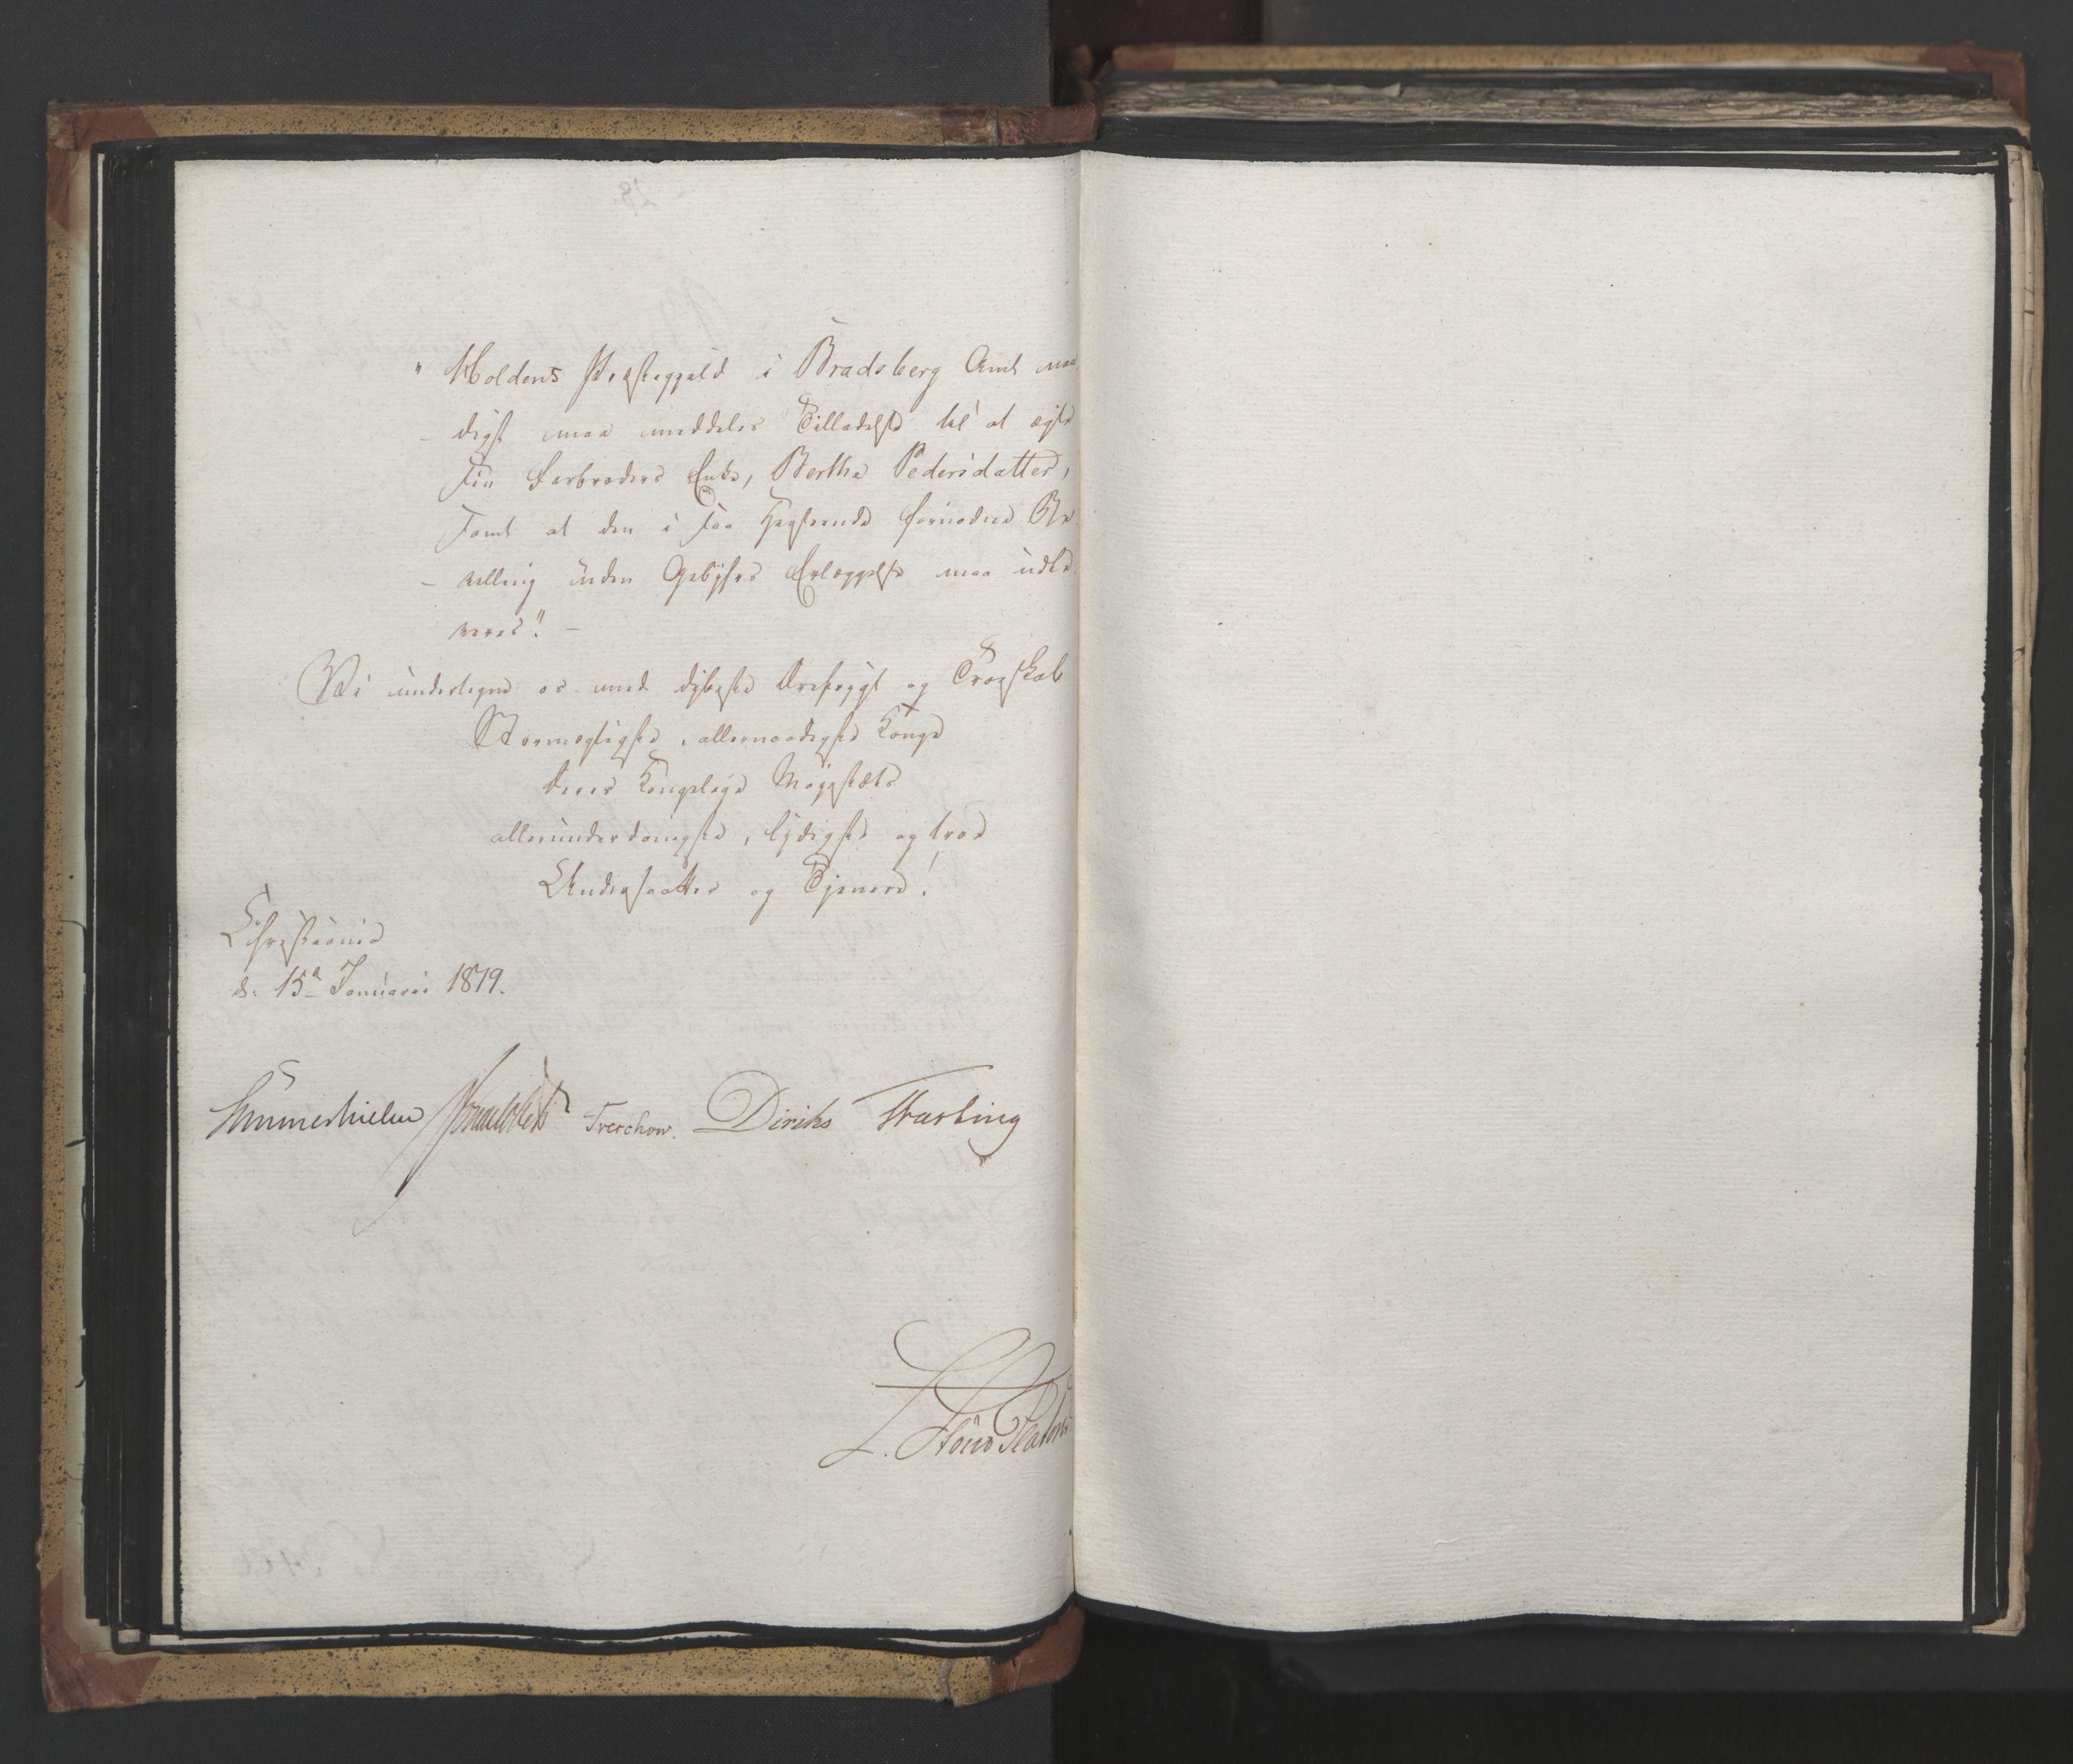 " Holdens Præstegjeld i Bradsberg Amt naa
- digst maa meddeles Tilladelse til at ægte
sin Farbroders Enke, Berthe Pedersdatter,
samt at den i saa Henseende fornødne Be
- villing uden Gebyhrs Erlæggelse maa udle
veres". -
Vi undertegne os med dybeste Ærefrygt og Troeskab
Stormægtigste, allernaadigste Konge
Deres Kongelige Majestæts
allerunderdanigste, lydigste og troe
Undersaatter og Tjenere!
Christiania
d: 15d Januari 1819.
Sommerhielm Treschow. Diriks Fasting
L.